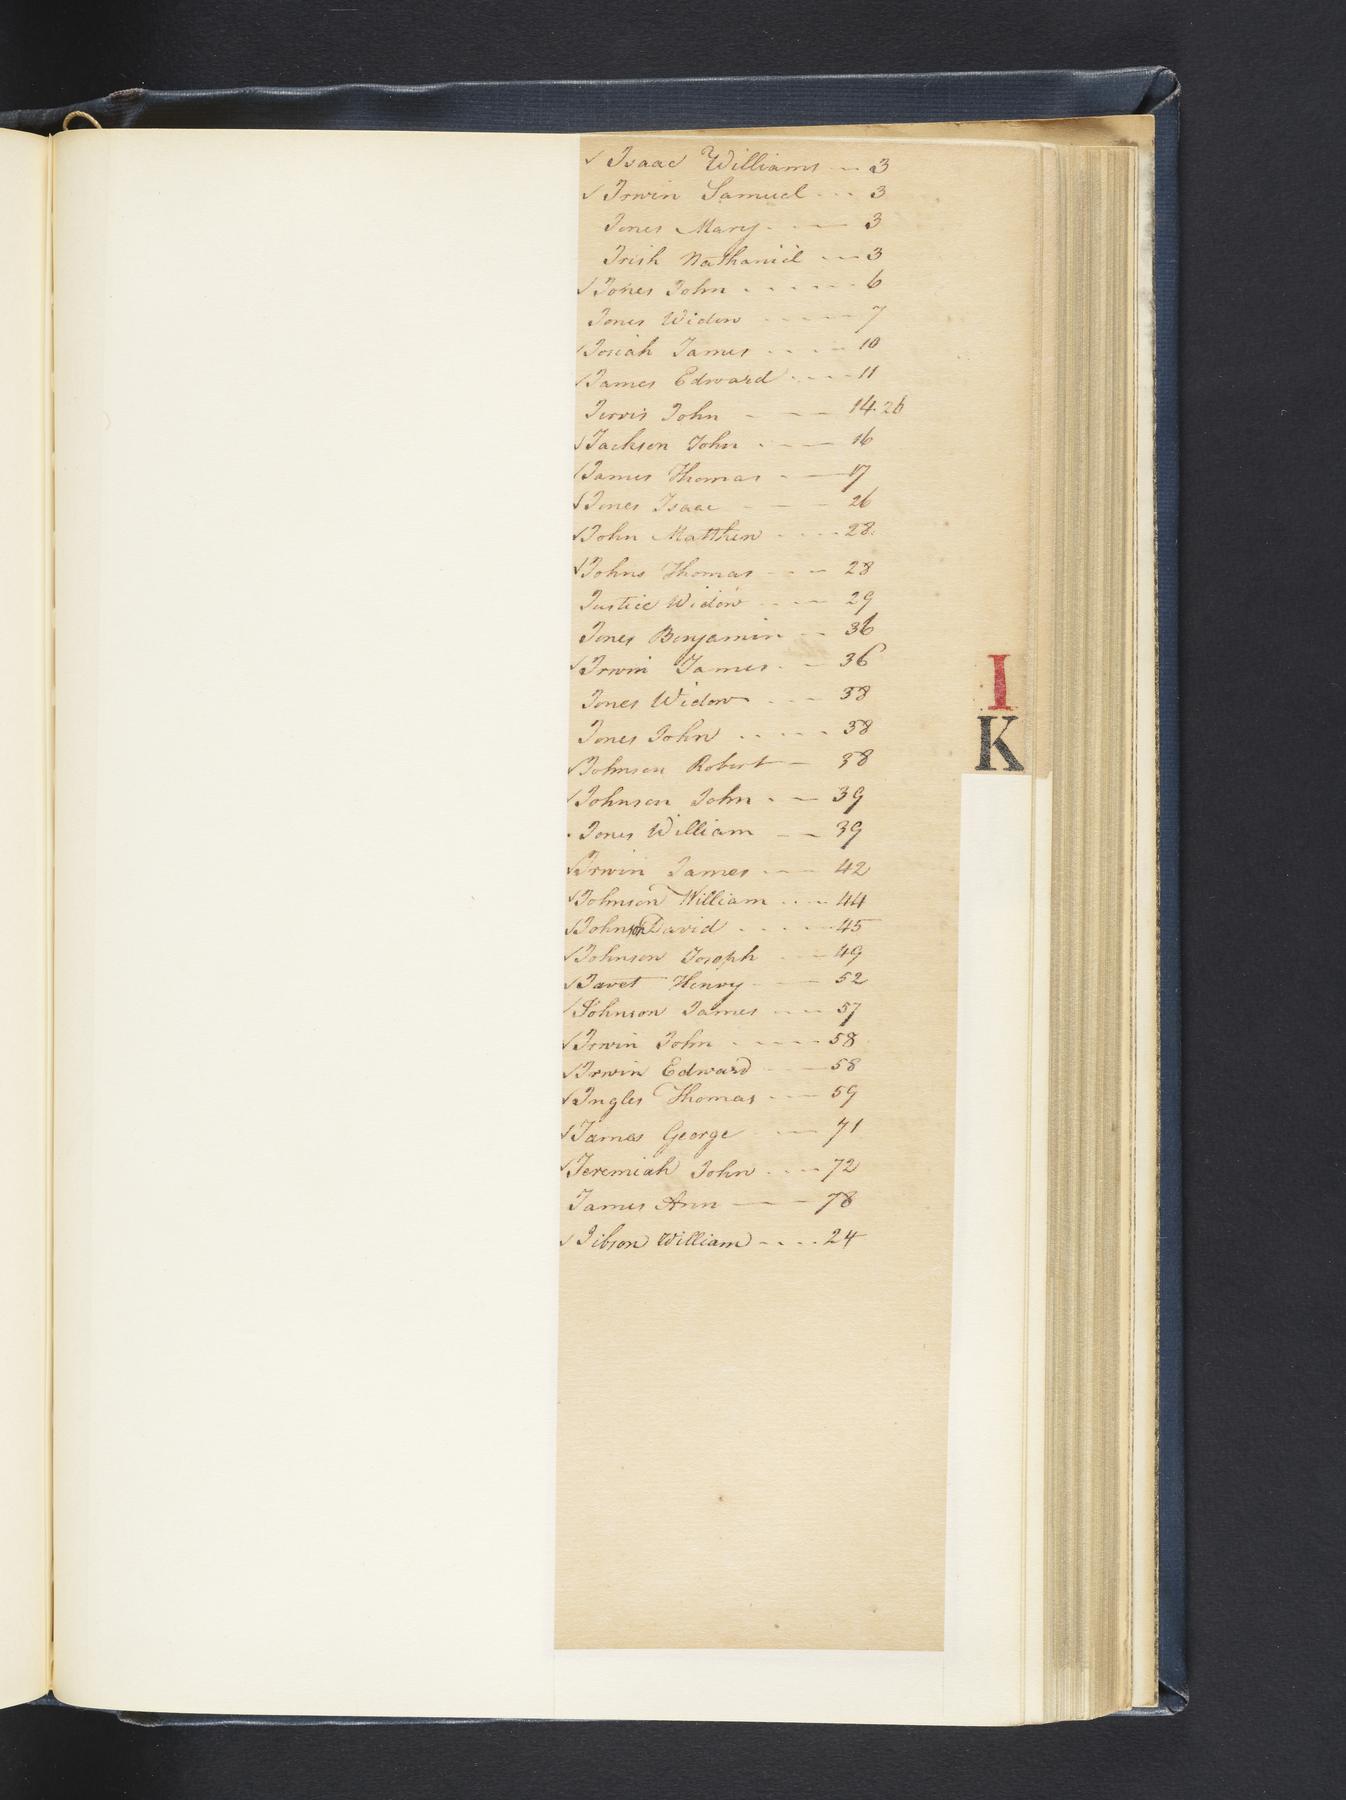 ✓ Isaac Williams -- 3
✓ Irwin Samuel --- 3
Jones Mary --- 3
Irish Nathaniel --- 3
✓ Jones John ----- 6
Jones Widow ----- 7
✓ Josiah James ---- 10
✓ James Edward ---- 11
Jervis John --- 14.26
✓ Jackson John --- 16
✓ James Thomas --- 17
✓ Jones Isaac --- 26
✓ John Matthew ---- 28
✓ Johns Thomas --- 28
Justice Widow ---- 29
Jones Benjamin -- 36
✓ Irwin James -- 36
Jones Widow --- 38
Jones John ----- 38
✓ Johnson Robert -- 38
✓ Johnson John -- 39
Jones William -- 39
✓ Irwin James --- 42
✓ Johnson William ---- 44
✓ Johnson David ----- 45
✓ Johnson Joseph --- 49
✓ Javet Henry --- 52
✓ Johnson James --- 57
✓ Irwin John ----- 58
✓ Irwin Edward --- 58
✓ Ingles Thomas --- 59
✓ James George --- 71
✓ Jeremiah John ---- 72
James Ann --- 78
✓ Jibson William ---- 24
I
K